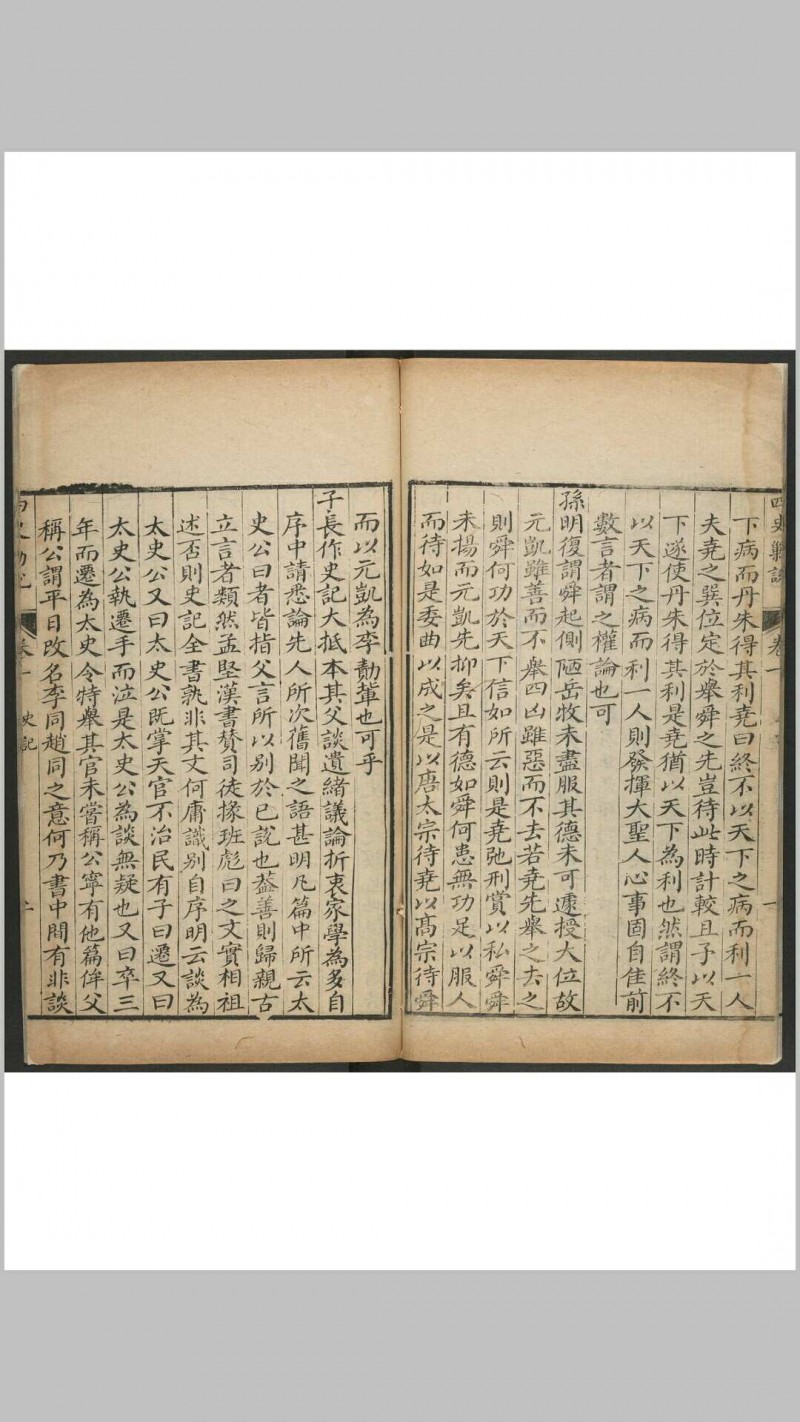 四史勦說
卷一
一
下病而丹朱得其利堯曰終不以天下之病而利一人
夫堯之巽位定於舉舜之先豈待此時計較且子以天
下遂使丹朱得其利是堯猶以天下為利也然謂終不
以天下之病而利一人則發揮大聖人心事固自佳前
數言者謂之權論也可
孫明復謂舜起側陋岳牧未盡服其德未可遽授大位故
元凱雖善而不舉四凶雖惡而不去若堯先舉之去之
則舜何功於天下信如所云則是堯弛刑賞以私舜舜
未揚而元凱先抑矣且有德如舜何患無功足以服人
而待如是委曲以成之是以唐太宗待堯以髙宗待舜
而以元凱為李勣軰也可乎
子長作史記大抵本其父談遺緒議論折衷家學為多自
序中請悉論先人所次舊聞之語甚明凡篇中所云太
史公曰者皆指父言所以别於已說也葢善則歸親古
立言者類然孟堅漢書賛司徒掾班彪曰之文實相祖
述否則史記全書孰非其文何庸識别自序明云談為
太史公又曰太史公既掌天官不治民有子曰遷又曰
太史公執遷手而泣是太史公為談無疑也又曰卒三
年而遷為太史令特舉其官未嘗稱公寧有他篇侔父
稱公謂平日改名李同趙同之意何乃書中間有非談
卷一
史記